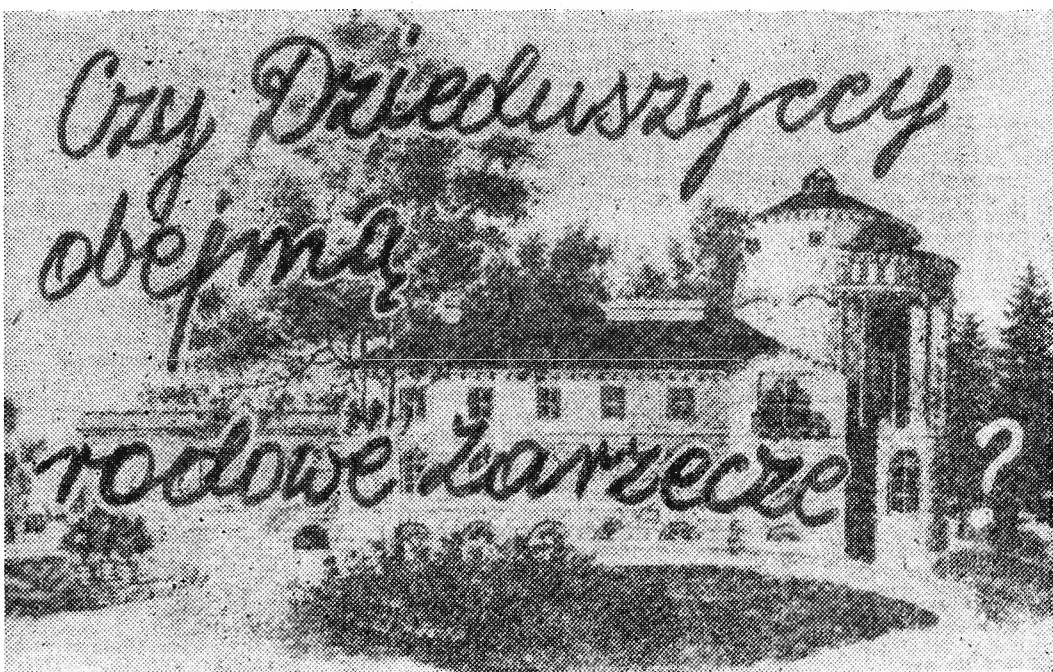 Czy Dzieduszyccy
obejmą
rodowe Zarzecze ?